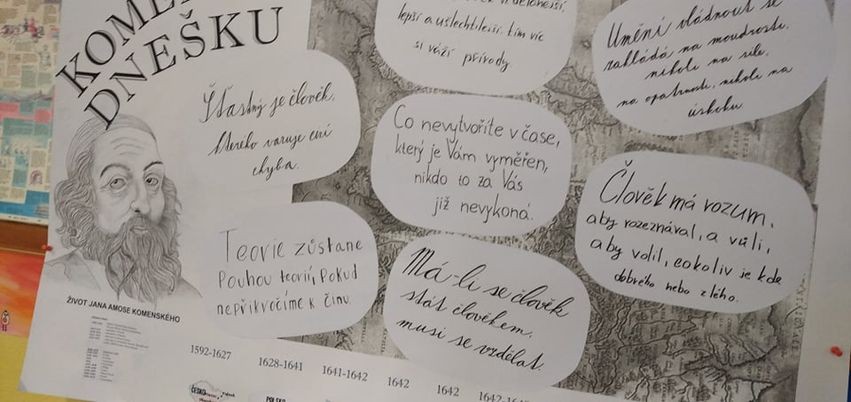 KOMEN
DNEŠKU
lepší a ušlechtilejší, tím víc
si váží přírody.
Umění vládnout se
zakládá na moudrosti,
nikoliv na síle,
na opatrnosti, nikoliv na
úskoku.
Šťastný je člověk,
kterého varuje cizí
chyba.
Co nevytvoříte v čase,
který je Vám vyměřen,
nikdo to za Vás
již nevykoná.
Člověk má rozum,
aby rozeznával, a vůli,
aby volil, cokoliv je kde
dobrého nebo zlého.
Teorie zůstane
pouhou teorií, pokud
nepřikročíme k činu.
Má-li se člověk
stát člověkem,
musí se vzdělat.
ŽIVOT JANA AMOSE KOMENSKÉHO
1592-1627
1628-1641
1641-1642
1642
1642
1642-16
ČESKO
POLSKO